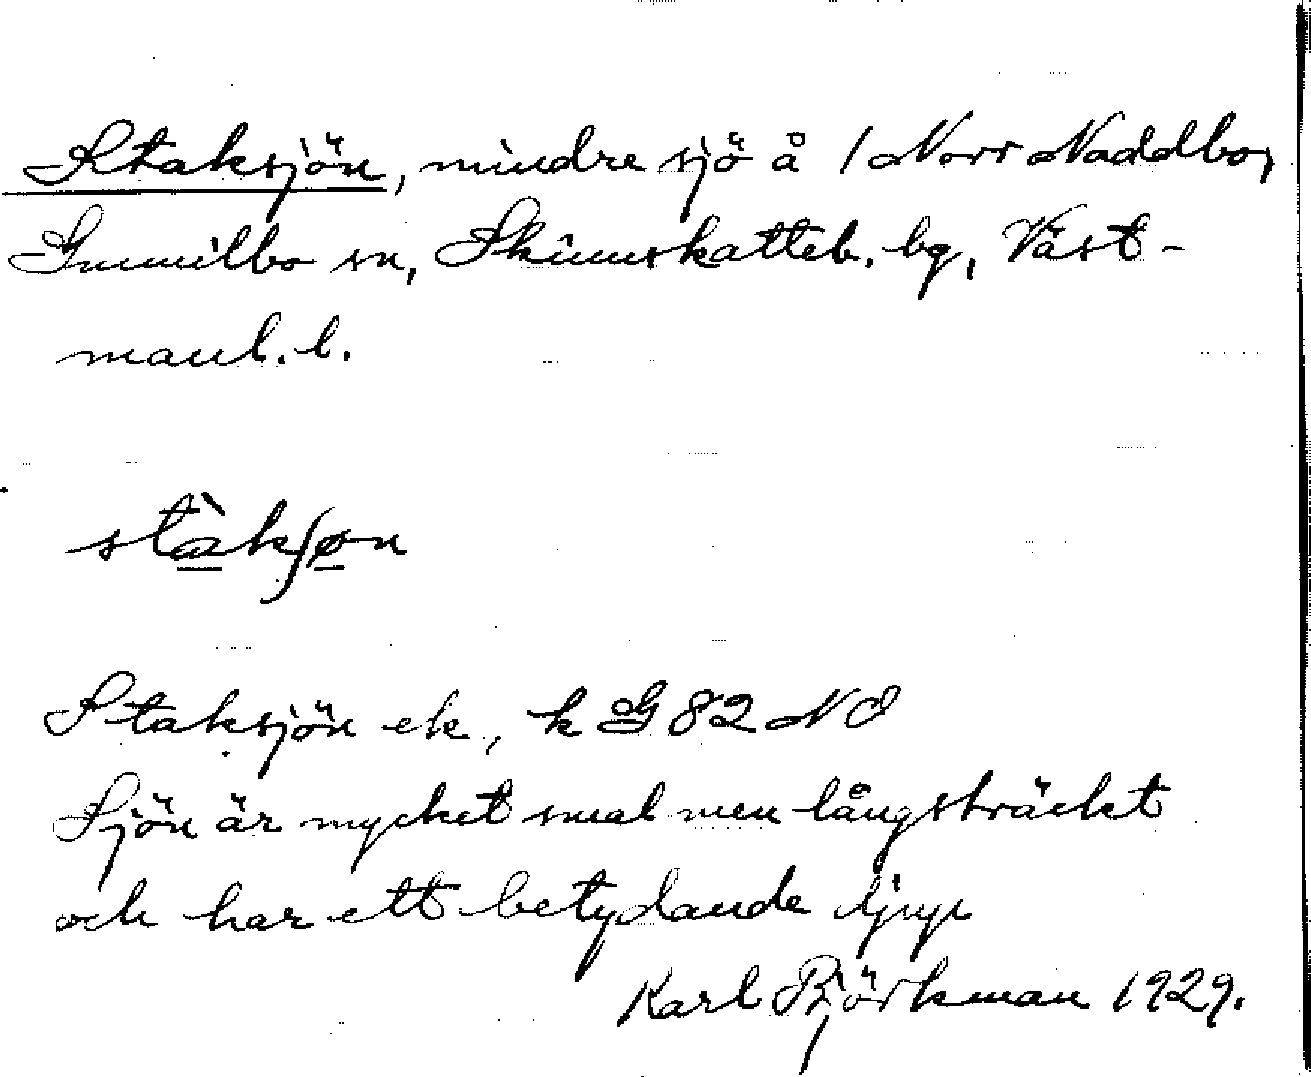 Staksjön, mindre sjö å 1 Norr Naddbo,
Gunnilbo sn, Skinnskatteb. bg, Väst-
manl. l.
stàkʃøn
Staksjön ek, k G 82 NO
Sjön är mycket smal men långsträckt
och har ett betydande djup
Karl Björkman 1929.